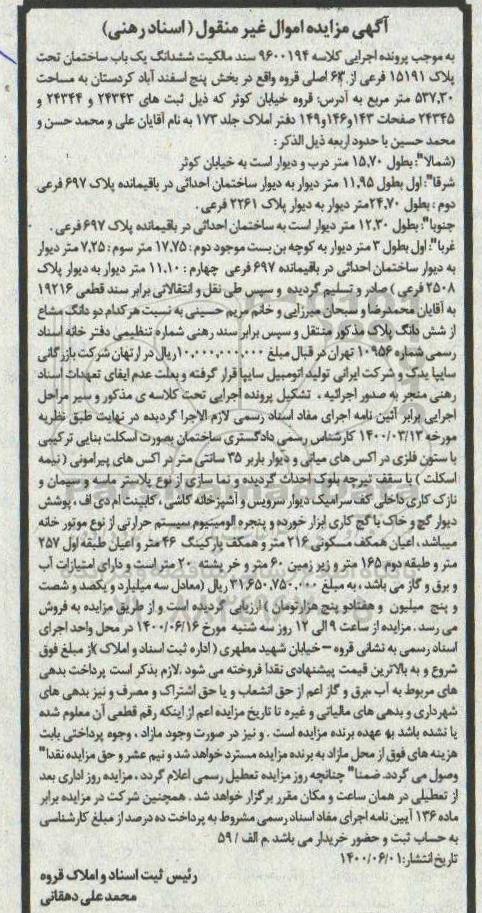 آگهی مزایده اموال غیر منقول (اسناد رهنی)
به موجب پرونده اجرایی کلاسه ۹۶۰۰۱۹۴ سند مالکیت ششدانگ یک باب ساختمان تحت
پلاک ۱۵۱۹۱ فرعی از ۶۳ اصلی قروه واقع در بخش پنج اسفند آباد کردستان به مساحت
۵۳۷,۳۰ متر مربع به آدرس: قروه خیابان کوثر که ذیل ثبت های ۲۴۳۴۳ و ۲۴۳۴۴ و
۲۴۳۴۵ صفحات ۱۴۳و۱۴۶و۱۴۹ دفتر املاک جلد ۱۷۳ به نام آقایان علی و محمد حسن و
محمد حسین با حدود اربعه ذیل الذکر:
(شمالا": بطول ۱۵,۷۰ متر درب و دیوار است به خیابان کوثر
شرقا": اول بطول ۱۱,۹۵ متر دیوار به دیوار ساختمان احداثی در باقیمانده پلاک ۶۹۷ فرعی
دوم : بطول ۲۴,۷۰متر دیوار به دیوار پلاک ۲۲۶۱ فرعی .
جنوبا": بطول ۱۲,۳۰ متر دیوار است به ساختمان احداثی در باقیمانده پلاک ۶۹۷ فرعی .
غربا": اول بطول ۳ متر دیوار به کوچه بن بست موجود دوم : ۱۷,۷۵ متر سوم : ۷,۲۵ متر دیوار
به دیوار ساختمان احداثی در باقیمانده ۶۹۷ فرعی چهارم : ۱۱,۱۰ متر دیوار به دیوار پلاک
۲۵۰۸ فرعی ) صادر و تسلیم گردیده و سپس طی نقل و انتقالاتی برابر سند قطعی ۱۹۲۱۶
به آقایان محمدرضا و سبحان میرزایی و خانم مریم حسینی به نسبت هر کدام دو دانگ مشاع
از شش دانگ پلاک مذکور منتقل و سپس برابر سند رهنی شماره تنظیمی دفتر خانه اسناد
رسمی شماره ۱۰۹۵۶ تهران در قبال مبلغ ۱۰,۰۰۰,۰۰۰,۰۰۰ریال در ارتهان شرکت بازرگانی
سایپا یدک و شرکت ایرانی تولید اتومبیل سایپا قرار گرفته و بعلت عدم ایفای تعهدات اسناد
رهنی منجر به صدور اجرائیه ، تشکیل پرونده اجرایی تحت کلاسه ی مذکور و سیر مراحل
اجرایی برابر آئین نامه اجرای مفاد اسناد رسمی لازم الاجرا گردیده در نهایت طبق نظریه
مورخه ۱۴۰۰/۰۳/۱۳ کارشناس رسمی دادگستری ساختمان بصورت اسکلت بنایی ترکیبی
با ستون فلزی در اکس های میانی و دیوار باربر ۳۵ سانتی متر در اکس های پیرامونی ( نیمه
اسکلت ) با سقف تیرچه بلوک احداث گردیده و نما سازی از نوع پلاستر ماسه و سیمان و
نازک کاری داخلی کف سرامیک دیوار سرویس و آشپزخانه کاشی ، کابینت ام دی اف ، پوشش
دیوار گچ و خاک با گچ کاری ابزار خورده و پنجره آلومینیوم سیستم حرارتی از نوع موتور خانه
میباشد ، اعیان همکف مسکونی ۲۱۶ متر و همکف پارکینگ ۴۶ متر و اعیان طبقه اول ۲۵۷
متر و طبقه دوم ۱۶۵ متر و زیر زمین ۶۰ متر و خر پشته ۲۰ متر است و دارای امتیازات آب
و برق و گاز می باشد ، به مبلغ ۳۱,۶۵۰,۷۵۰,۰۰۰ ریال (معادل سه میلیارد و یکصد و شصت
و پنج میلیون و هفتادو پنج هزارتومان ) ارزیابی گردیده است و از طریق مزایده به فروش
می رسد . مزایده از ساعت ۹ الی ۱۲ روز سه شنبه مورخ ۱۴۰۰/۰۶/۱۶ در محل واحد اجرای
اسناد رسمی به نشانی قروه – خیابان شهید مطهری ( اداره ثبت اسناد و املاک )از مبلغ فوق
شروع و به بالاترین قیمت پیشنهادی نقدا فروخته می شود .لازم بذکر است پرداخت بدهی
های مربوط به آب ،برق و گاز اعم از حق انشعاب و یا حق اشتراک و مصرف و نیز بدهی های
شهرداری و بدهی های مالیاتی و غیره تا تاریخ مزایده اعم از اینکه رقم قطعی آن معلوم شده
یا نشده باشد به عهده برنده مزایده است . و نیز در صورت وجود مازاد ، وجوه پرداختی بابت
هزینه های فوق از محل مازاد به برنده مزایده مسترد خواهد شد و نیم عشر و حق مزایده نقدا"
وصول می گردد. ضمنا" چنانچه روز مزایده تعطیل رسمی اعلام گردد ، مزایده روز اداری بعد
از تعطیلی در همان ساعت و مکان مقرر برگزار خواهد شد . همچنین شرکت در مزایده برابر
ماده ۱۳۶ آیین نامه اجرای مفاد اسناد رسمی مشروط به پرداخت ده درصد از مبلغ کارشناسی
به حساب ثبت و حضور خریدار می باشد .م الف / ۵۹
تاریخ انتشار: ۱۴۰۰/۰۶/۰۱
رئیس ثبت اسناد و املاک قروه
محمد علی دهقانی